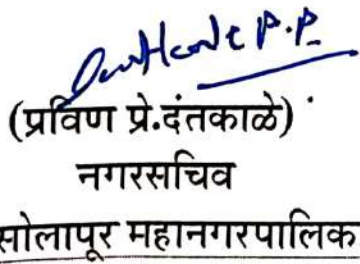 (प्रविण प्रे.दंतकाळे)
नगरसचिव
सोलापूर महानगरपालिक